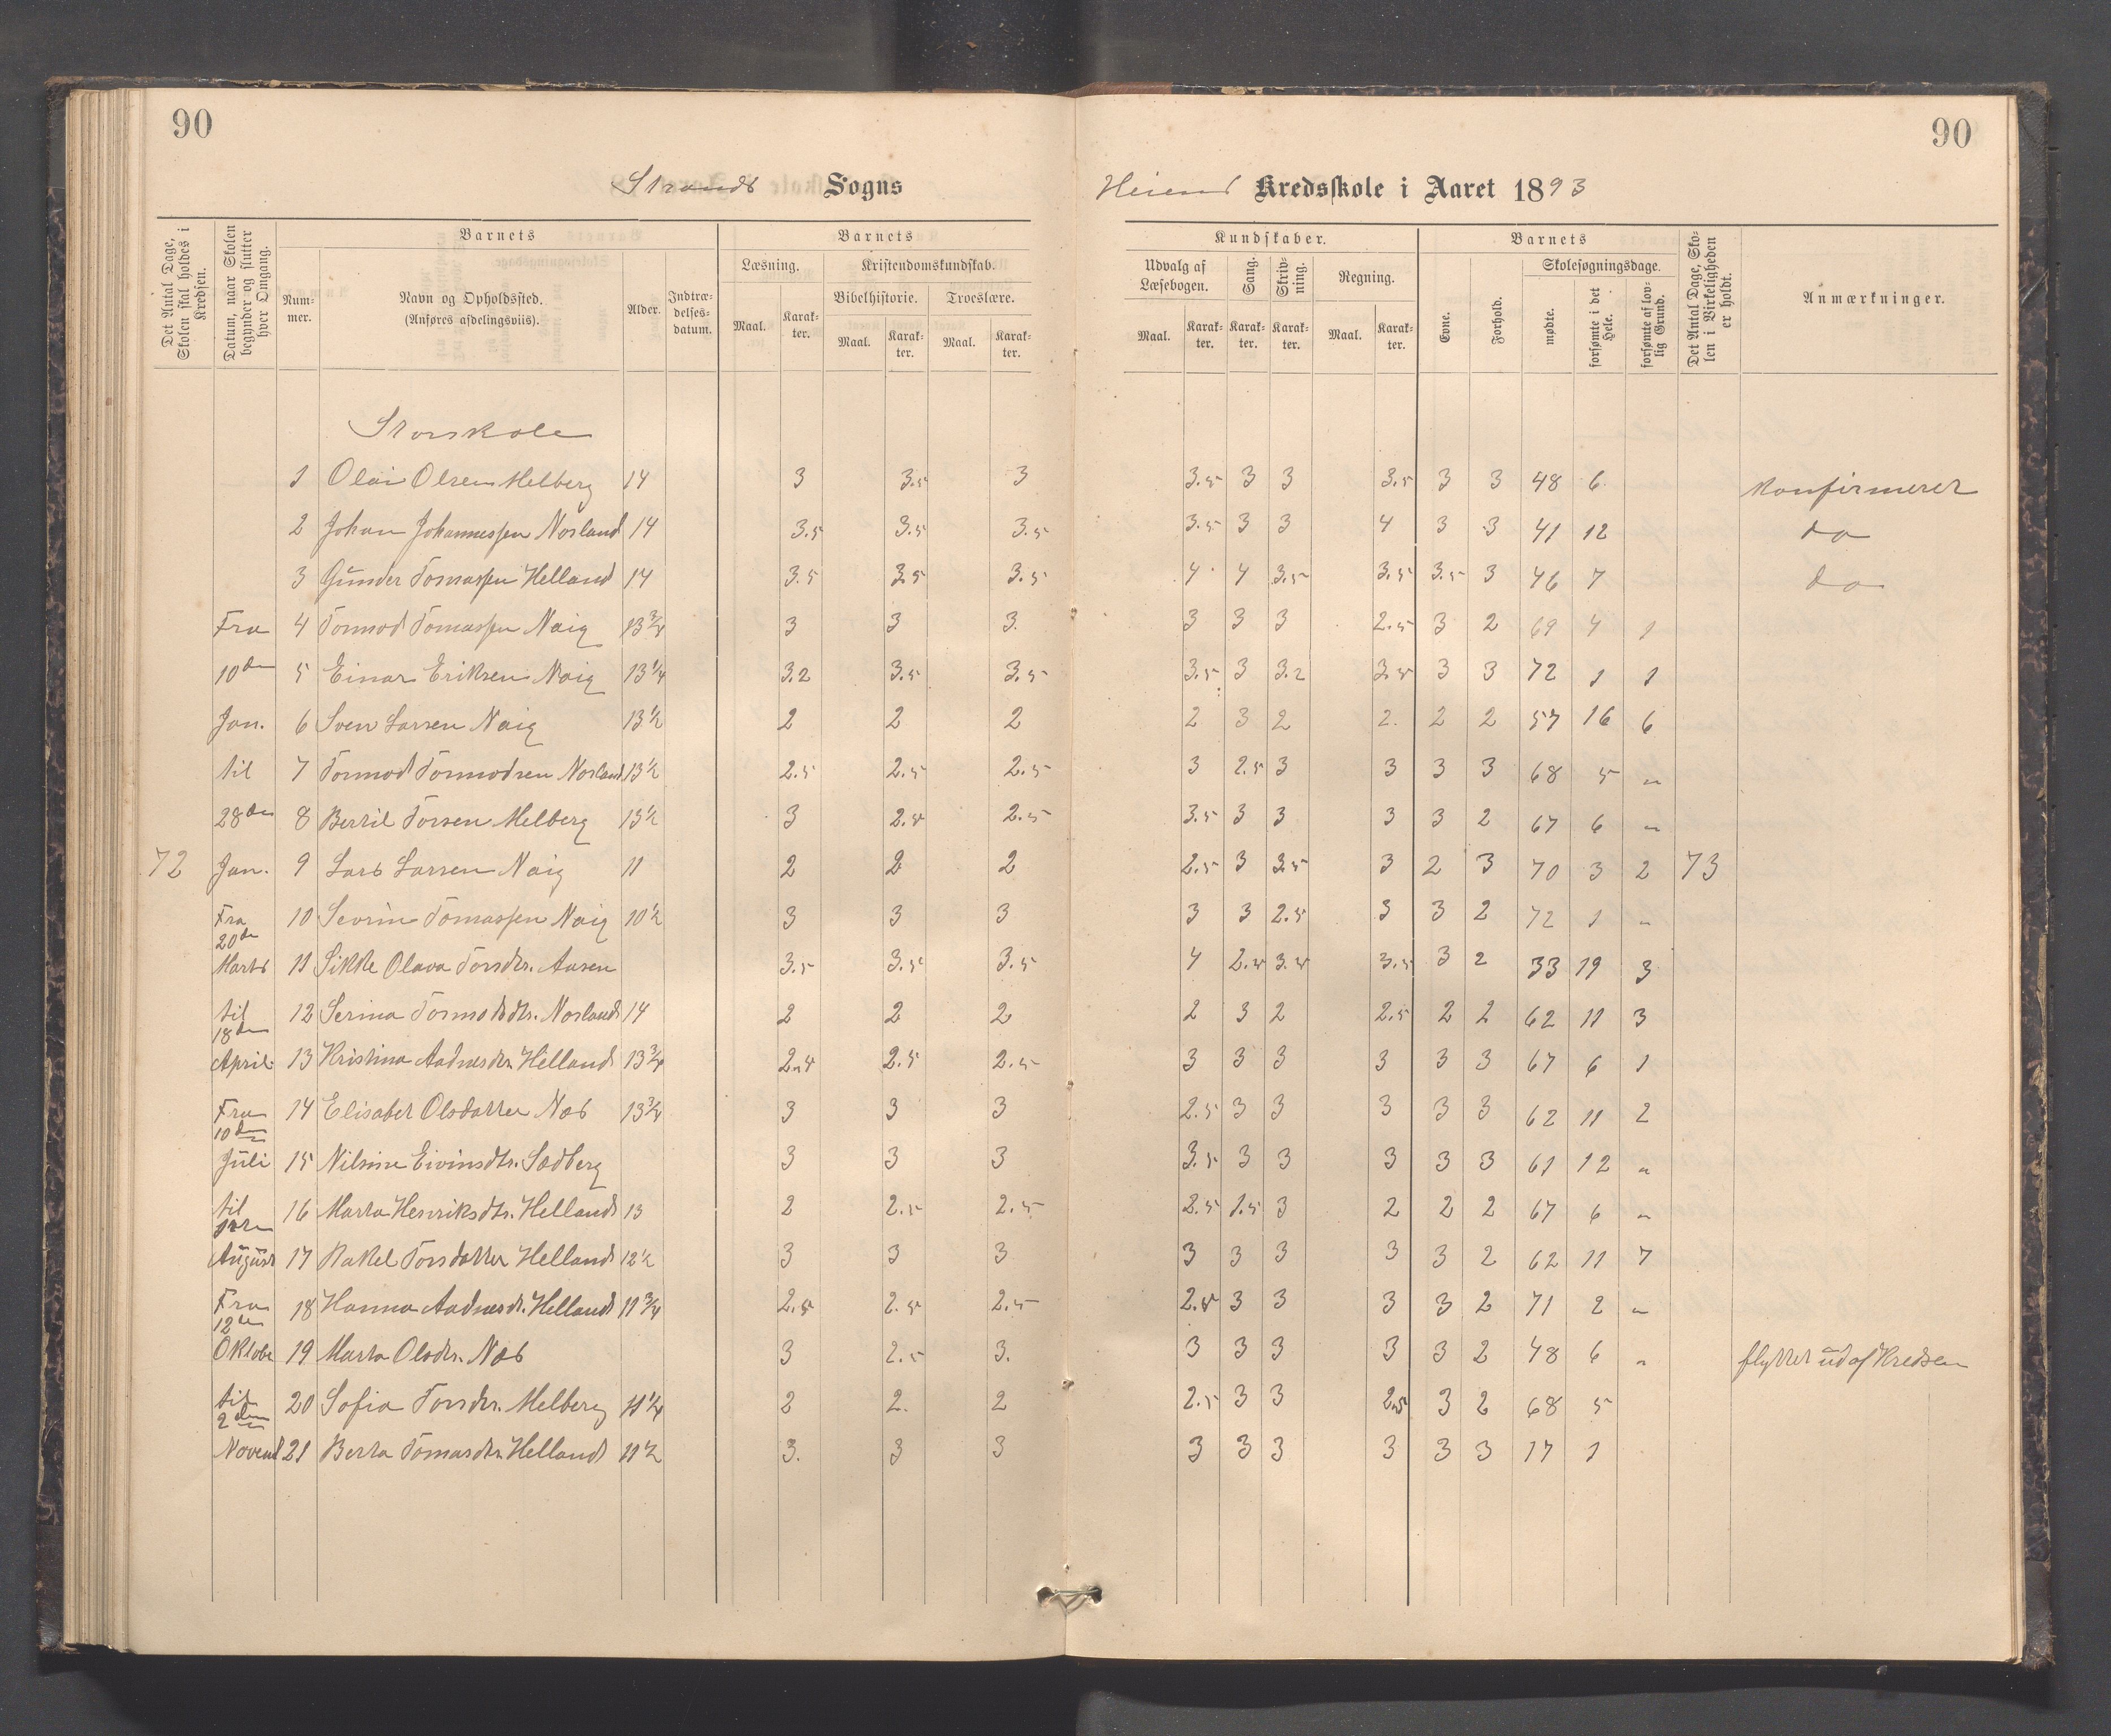 90
90
Strands Sogns
Heien Kredsskole i Aaret 1893
Det Antal Dage, Skolen skal holdes i Kredsen.
Datum, naar Skolen begynder og slutter hver Omgang.
Barnets
Nummer.
Navn og Opholdssted.
(Anføres afdelingsviis).
Alder.
Indtrædelsesdatum.
Barnets
Læsning.
Kristendomskundskab.
Bibelhistorie.
Troeslære.
Maal.
Karakter.
Maal.
Karakter.
Maal.
Karakter.
Kundskaber.
Udvalg af Læsebogen.
Sang.
Skrivning.
Regning.
Maal.
Karakter.
Karakter.
Karakter.
Maal.
Karakter.
Barnets
Evne.
Forhold.
Skolesøgningsdage.
mødte.
forsømte i det Hele.
forsømte af lovlig Grund.
Det Antal Dage, Skolen i Virkeligheden er holdt.
Anmærkninger.
Storskole
1 Olai Olsen Melberg 14 3 3.5 3 3.5 3 3 3.5 3 3 48 6 konfirmeret
2 Johan Johannessen Norland 14 3.5 3.5 3.5 3.5 3 3 4 3 3 41 12 do
3 Gunder Tomassen Helland 14 3.5 3.5 3.5 4 4 3.5 3.5 3.5 3 46 7 do
Fra 4 Tormod Tomassen Naig 13¾ 3 3 3 3 3 3 2.5 3 2 69 4 1
10de 5 Einar Eriksen Naig 13¼ 3.2 3.5 3.5 3.5 3 3.2 3.5 3 3 72 1 1
Jan. 6 Sven Larsen Naig 13½ 2 2 2 2 3 2 2. 2 2 57 16 6
til 7 Tormod Tormodsen Norland 13½ 2.5 2.5 2.5 3 2.5 3 3 3 3 68 5 "
28de 8 Bertil Torsen Melberg 13½ 3 2.5 2.5 3.5 3 3 3 3 2 67 6 "
72 Jan. 9 Lars Larsen Naig 11 2 2 2 2.5 3 3.5 3 2 3 70 3 2 73
Fra 20de 10 Sevrin Tomassen Naig 10½ 3 3 3 3 3 2.5 3 3 2 72 1 "
Marts 11 Sikke Olava Torsdtr. Aasen 3.5 3.5 3.5 4 2.5 3.5 3.5 3 2 33 19 3
til 18de 12 Serina Tormodsdtr. Norland 14 2 2 2 2 3 2 2.5 2 2 62 11 3
April 13 Kristina Aadnesdtr. Helland 13¾ 2.5 2.5 2.5 3 3 3 3 3 3 67 6 1
Fra 10de 14 Elisabet Olsdatter Nes 13¾ 3 3 3 2.5 3 3 3 3 3 62 11 2
Juli 15 Nilsine Eivindsdtr. Sedberg 3 3 3 3.5 3 3 3 3 3 61 12 "
til 16 Marta Henriksdtr. Helland 13 2 2.5 2.5 2.5 2.5 3 2 2 2 67 6 "
August 17 Rakel Torsdatter Helland 12½ 3 3 3 3 3 3 3 3 2 62 11 7
Fra 12te 18 Hanna Aadnesdt. Helland 11¾ 2.5 2.5 2.5 2.5 3 3 3 3 2 71 2 "
Oktobe 19 Marta Olsdtr. Nes 3 2.5 3. 3 3 3 3 3 2 48 6 " flyttet ud af Kredsen
til 2den 20 Sofia Torsdtr. Melberg 11¼ 2 2. 2 2.5 3 3 2.5 3 2 68 5
Novemb 21 Berta Tomasdtr. Helland 11½ 3. 3 3 3 3 3 3 3 3 17 1